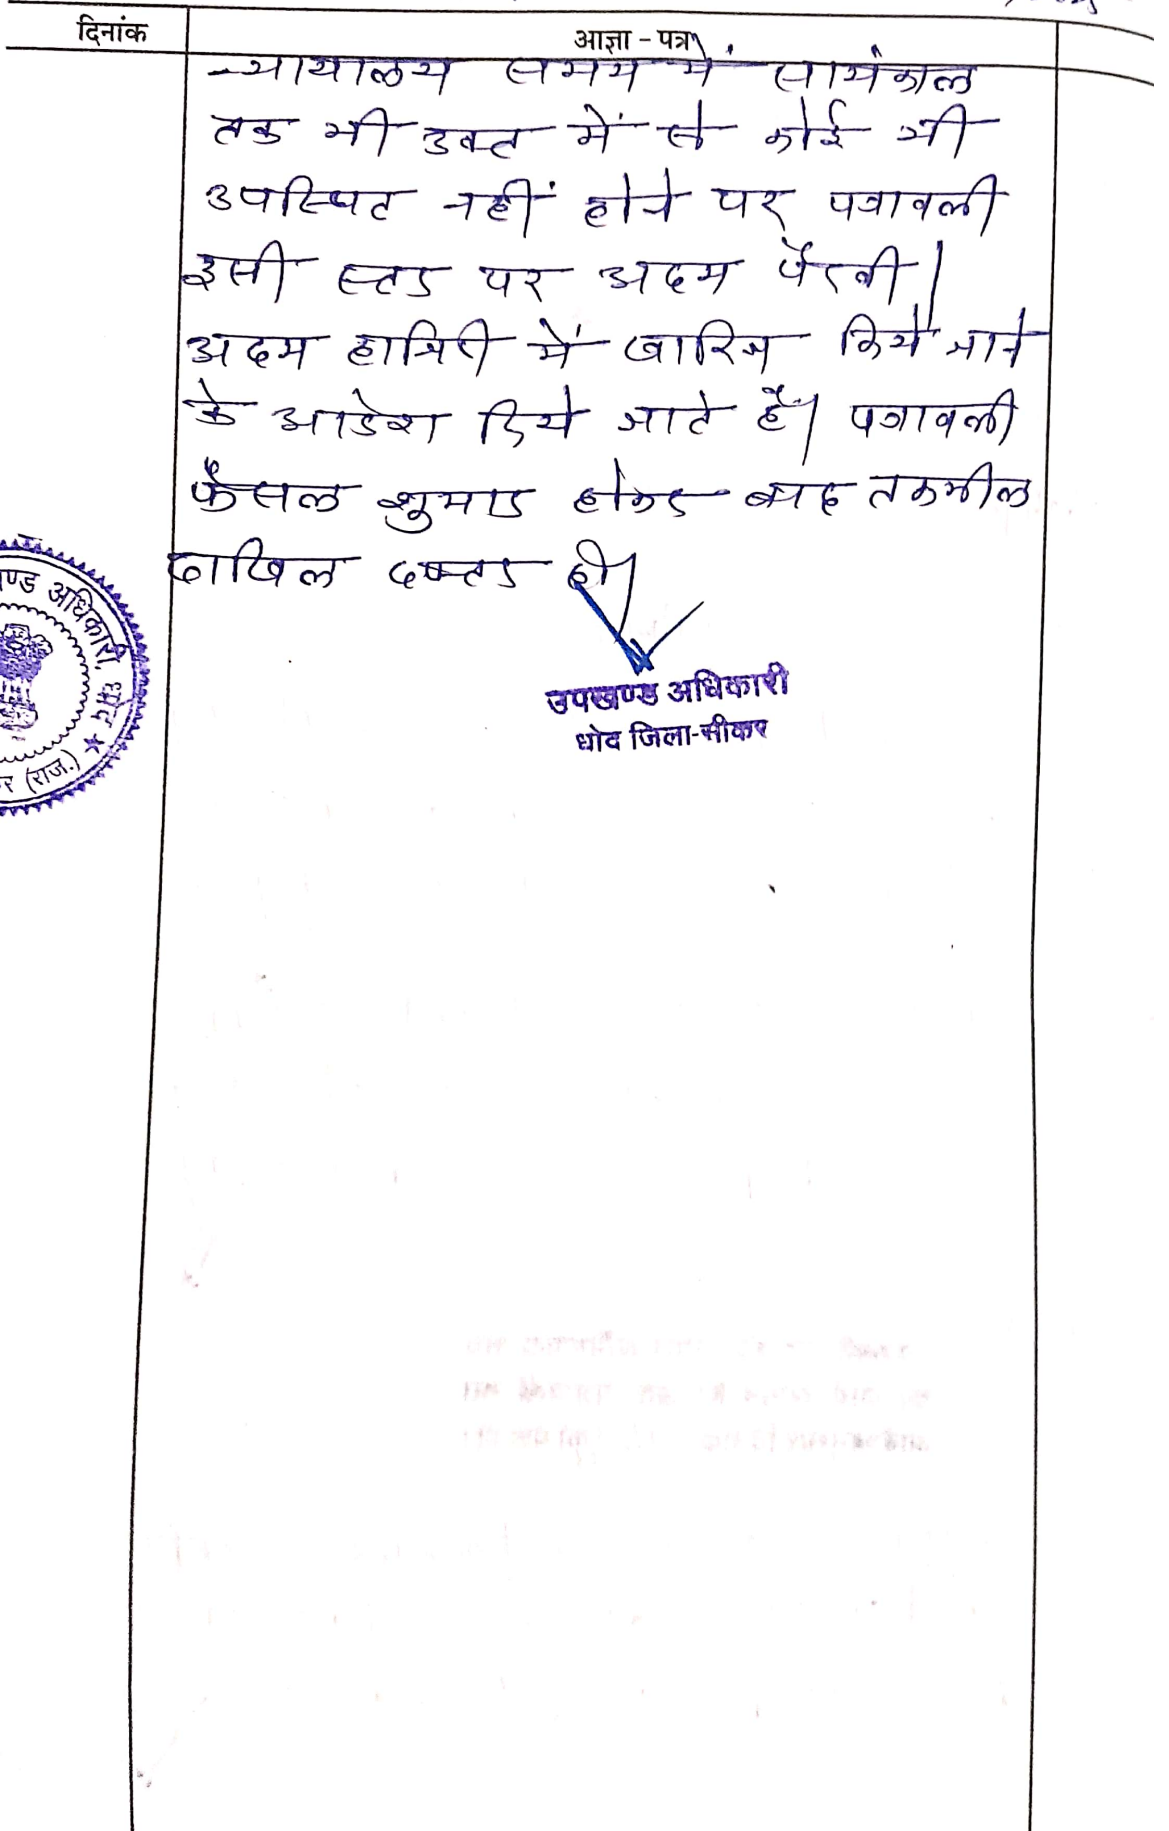 दिनांक
आज्ञा - पत्र
न्यायालय समय में सायंकाल
तक भी उक्त में से कोई भी
उपस्थित नहीं होने पर पत्रावली
इसी स्तर पर अदम पैरवी/
अदम हाजिरी में खारिज किये जाने
के आदेश दिये जाते हैं। पत्रावली
फैसल शुमार होकर बाद तकमील
दाखिल दफ्तर हो।
ण्ड अधिकारी, धोद ★
र (राज.)
उपखण्ड अधिकारी
धोद जिला-सीकर